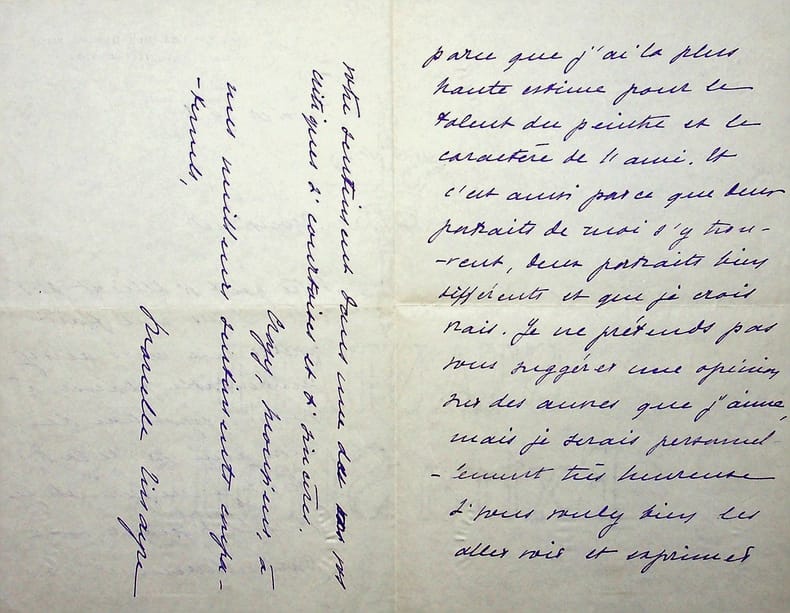 parce que j'ai la plus
haute estime pour le
talent du peintre et le
caractère de l'ami. Et
c'est aussi parce que deux
portraits de moi s'y trou-
-vent, deux portraits bien
différents et que je crois
vrais. Je ne prétends pas
vous suggérer une opinion
sur des œuvres que j'aime,
mais je serais personnel
-lement très heureuse
si vous vouliez bien les
aller voir et exprimer
votre sentiment dans une de vos
critiques si courtoises et si sincères.
Croyez, Monsieur, à
mes meilleurs sentiments confra-
-ternels,
Marcelle Tinayre